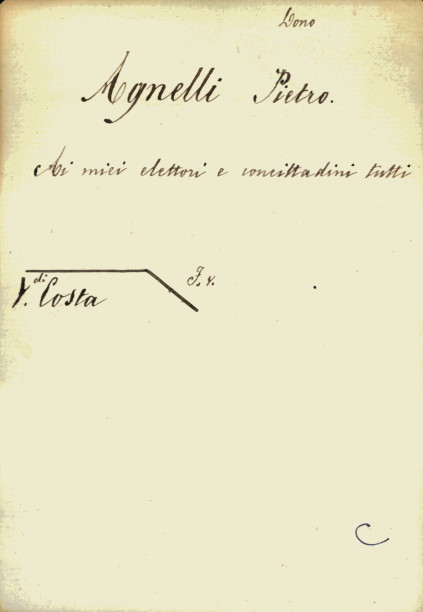 Dono
Agnelli Pietro.
Ai miei elettori e concittadini tutti
F. v.
V. di Costa
C